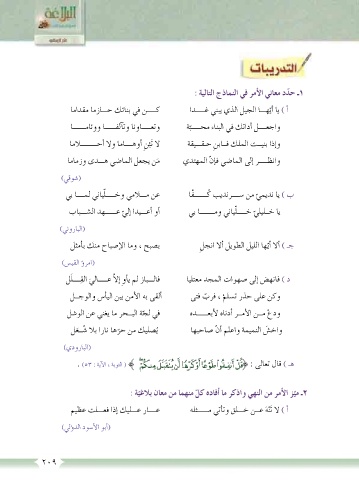 البلاغة
التدريبات
١ـ حدّد معاني الأمر في النماذج التالية :
أ ) يا أيّهـا الجيل الذي يبني غـــدا كــن في بنائك حـازمـا مقداما
واجعـل أداتك في البناء محـبـّة وتعـاونا وتآلفـا ووئامـا
وإذا بنيـت الملك فـابن حقـيقة لا تَبْنِ أوهـاما ولا أحــلامـا
وانظـر إلى الماضي فإنّ المهتدي مَن يجعل الماضي هـدى وزماما
(شوقي)
ب ) يا نديميّ من سـرنديب كُـفّـا عن ملامي وخـلّياني لمـا بي
يا خـليليّ خـلّياني ومـا بي أو أعـيدا إليّ عـهد الشباب
(البارودي)
جـ ) ألا أيّها الليل الطويل ألا انجل بصبح ، وما الإصباح منك بأمثل
(امرؤ القيس)
د ) فانهض إلى صهوات المجد معتليا فالبـاز لم يأو إلاّ عـاليَ القُـلَل
وكن على حذر تسلم ، فربّ فتى ألقى به الأمن بين اليأس والوجل
ودع من الأمر أدناه لأبعـده في لجّة البحر ما يغني عن الوشل
واخش النميمة واعلم أنّ صاحبها يُصليك من حرّها نارا بلا شُعل
(البارودي)
هـ ) قال تعالى : ﴿ قُلْ أَنفِقُوا طَوْعًا أَوْ كَرْهًا لَّن يُتَقَبَّلَ مِنكُمْ ﴾ ( التوبة ، الآية : ٥٣ ) .
٢ـ ميّز الأمر من النهي واذكر ما أفاده كلّ منهما من معان بلاغيّة :
أ ) لا تَنْهَ عـن خـلق وتأتيَ مـثله عـار عـليك إذا فعلـت عظيم
(أبو الأسود الدؤلي)
٢٠٩